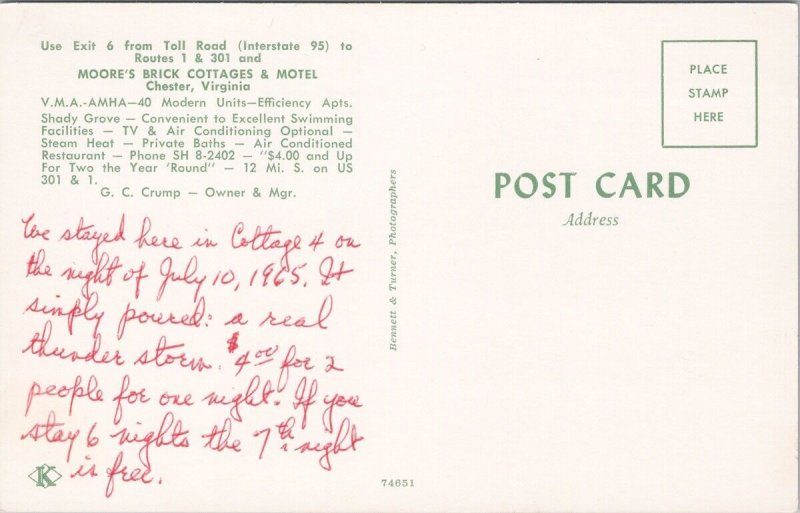 Use Exit 6 from Toll Road (Interstate 95) to
Routes 1 & 301 and
MOORE'S BRICK COTTAGES & MOTEL
Chester, Virginia
V.M.A.-AMHA—40 Modern Units—Efficiency Apts.
Shady Grove — Convenient to Excellent Swimming
Facilities — TV & Air Conditioning Optional —
Steam Heat — Private Baths — Air Conditioned
Restaurant — Phone SH 8-2402 — "$4.00 and Up
For Two the Year 'Round" — 12 Mi. S. on US
301 & 1.
G. C. Crump — Owner & Mgr.
We stayed here in Cottage 4 on
the night of July 10, 1965. It
simply poured: a real
thunder storm. $4.00 for 2
people for one night. If you
stay 6 nights the 7th night
is free.
K
Bennett & Turner, Photographers
74651
PLACE
STAMP
HERE
POST CARD
Address